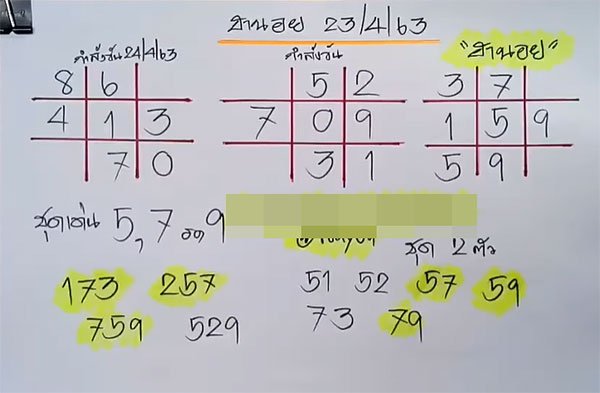 ฮานอย 23/4/63
กำลังวัน 24/4/63
กำลังวัน
"ฮานอย"
8 6
4 1 3
7 0
5 2
7 0 9
3 1
3 7
1 5 9
5 9
ชุดเด่น 5, 7 รอง 9
ชุด 2 ตัว
173 257
759 529
51 52 57 59
73 79